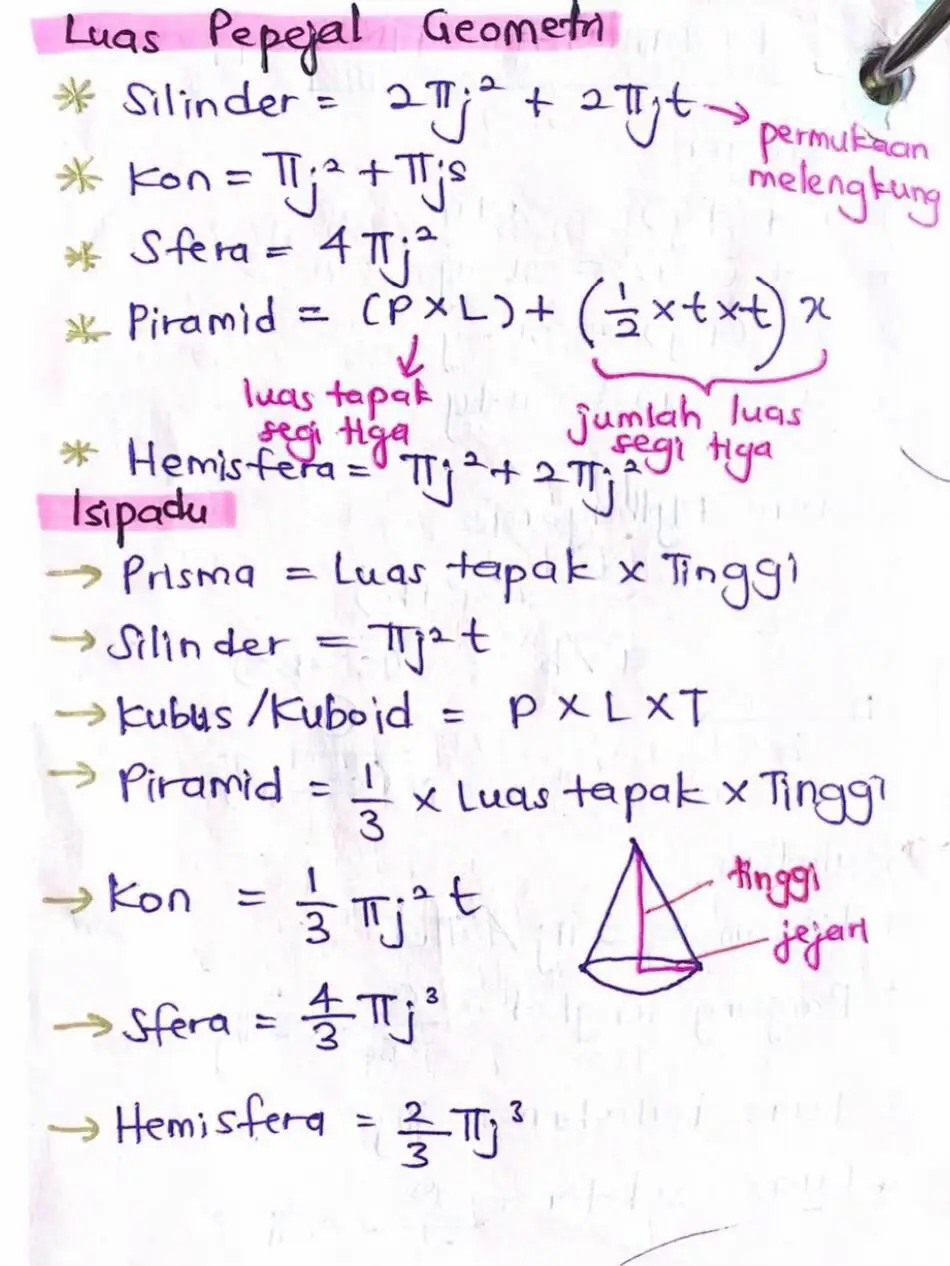 Luas Pepejal Geometri
* Silinder = 2πj² + 2πjt → permukaan melengkung
* Kon = πj² + πjs
* Sfera = 4πj²
* Piramid = (P × L) + (1/2 × t × t) x
luas tapak segi tiga
jumlah luas segi tiga
* Hemisfera = πj² + 2πj²
Isipadu
→ Prisma = Luas tapak × Tinggi
→ Silinder = πj²t
→ Kubus/Kuboid = P × L × T
→ Piramid = 1/3 × Luas tapak × Tinggi
→ Kon = 1/3 πj²t
tinggi
jejari
→ Sfera = 4/3 πj³
→ Hemisfera = 2/3 πj³